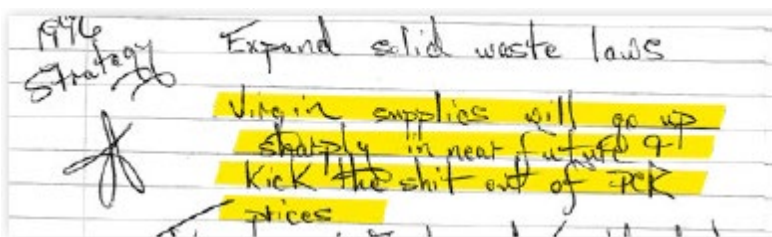 1994
Strategy
Expand solid waste laws
Virgin supplies will go up
sharply in near future &
Kick the shit out of PCR
prices